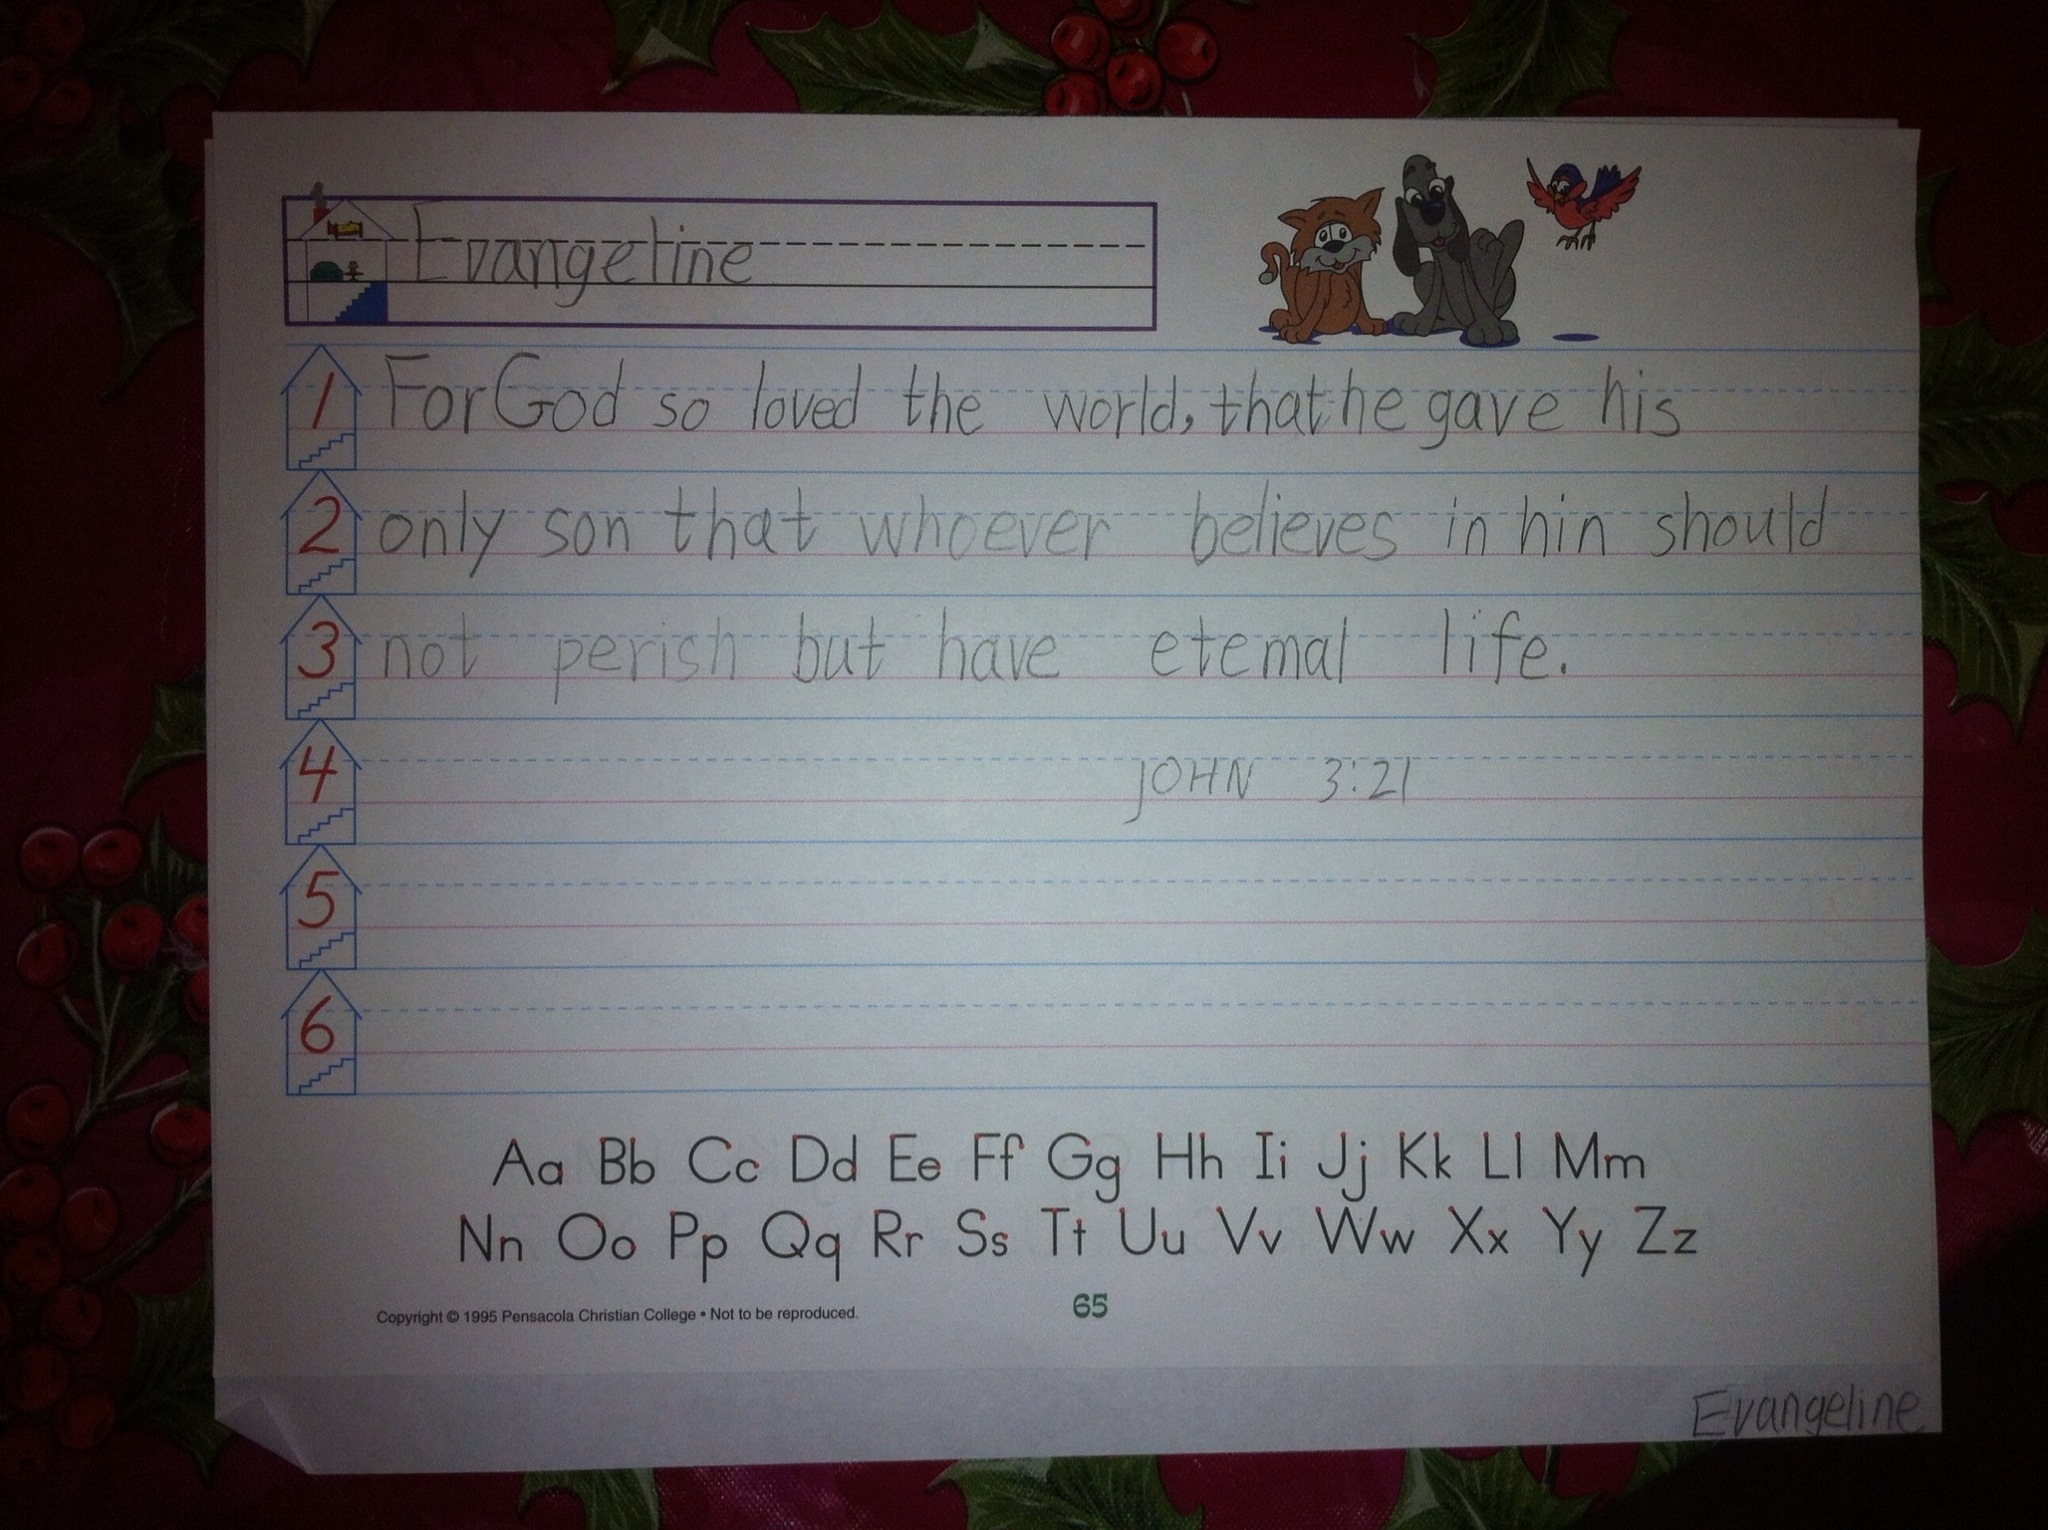 Evangeline
1 For God so loved the world, that he gave his
2 only son that whoever believes in hin should
3 not perish but have etemal life.
4 JOHN 3:21
5
6
Aa Bb Cc Dd Ee Ff Gg Hh Ii Jj Kk Ll Mm
Nn Oo Pp Qq Rr Ss Tt Uu Vv Ww Xx Yy Zz
Copyright © 1995 Pensacola Christian College • Not to be reproduced.
65
Evangeline